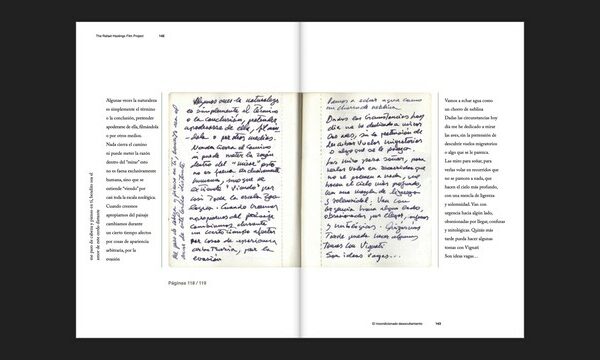 The Rafael Hastings Film Project
142
Algunas veces la naturaleza
es simplemente el término
o la conclusión, pretender
apoderarse de ella, filmándola
y por otros medios.
Nada cierra el camino
ni puede meter la razón
dentro del "mirar" esto
no es faena exclusivamente
humana, sino que se
extiende "viendo" por
casi toda la escala zoológica.
Cuando creemos
apropiarnos del paisaje
cambiamos durante
un cierto tiempo afectos
por cosas de apariencia
arbitraria, por la
evasión
me paso de cabeza y pienso en ti, bendito sea el
Algunas veces la naturaleza
es simplemente el término
o la conclusión, pretender
apoderarse de ella,
y por otros medios.
Nada cierra el camino
ni puede meter la razón
dentro del "mirar" esto
no es faena exclusivamente
humana, sino que se
extiende "viendo" por
casi toda la escala
Cuando creemos
apropiarnos del paisaje
cambiamos durante
un cierto tiempo afectos
por cosas de apariencia
arbitraria, por la
evasión
Páginas 118 / 119
Vamos a echar agua como
un chorro de neblina
Dadas las circunstancias hoy
día me he dedicado a mirar
las aves, sin la pretensión de
descubrir vuelos migratorios
o algo que se le parezca.
Las miro para soñar, para
verlas volar en recorridos que
no se parecen a nada, que
hacen el cielo más profundo,
con una mezcla de ligereza
y solemnidad. Van con
urgencia hacia algún lado,
obsesionadas por llegar, confusas
y mitológicas. Quizás más
tarde pueda hacer algunas
tomas con Vignati
Son ideas vagas...
Vamos a echar agua como
un chorro de neblina
Dadas las circunstancias hoy
día me he dedicado a mirar
las aves, sin la pretensión de
descubrir vuelos migratorios
o algo que se le parezca.
Las miro para soñar, para
verlas volar en recorridos que
no se parecen a nada, que
hacen el cielo más profundo,
con una mezcla de ligereza
y solemnidad. Van con
urgencia hacia algún lado,
obsesionadas por llegar, confusas
y mitológicas. Quizás más
tarde pueda hacer algunas
tomas con Vignati
Son ideas vagas...
El incondicionado desocultamiento
143